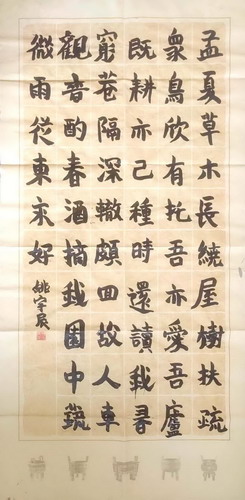 孟夏草木長繞屋樹扶疏
衆鳥欣有托吾亦愛吾廬
既耕亦已種時還讀我書
窮巷隔深轍頗回故人車
歡言酌春酒摘我園中蔬
微雨從東來好
姚宇辰